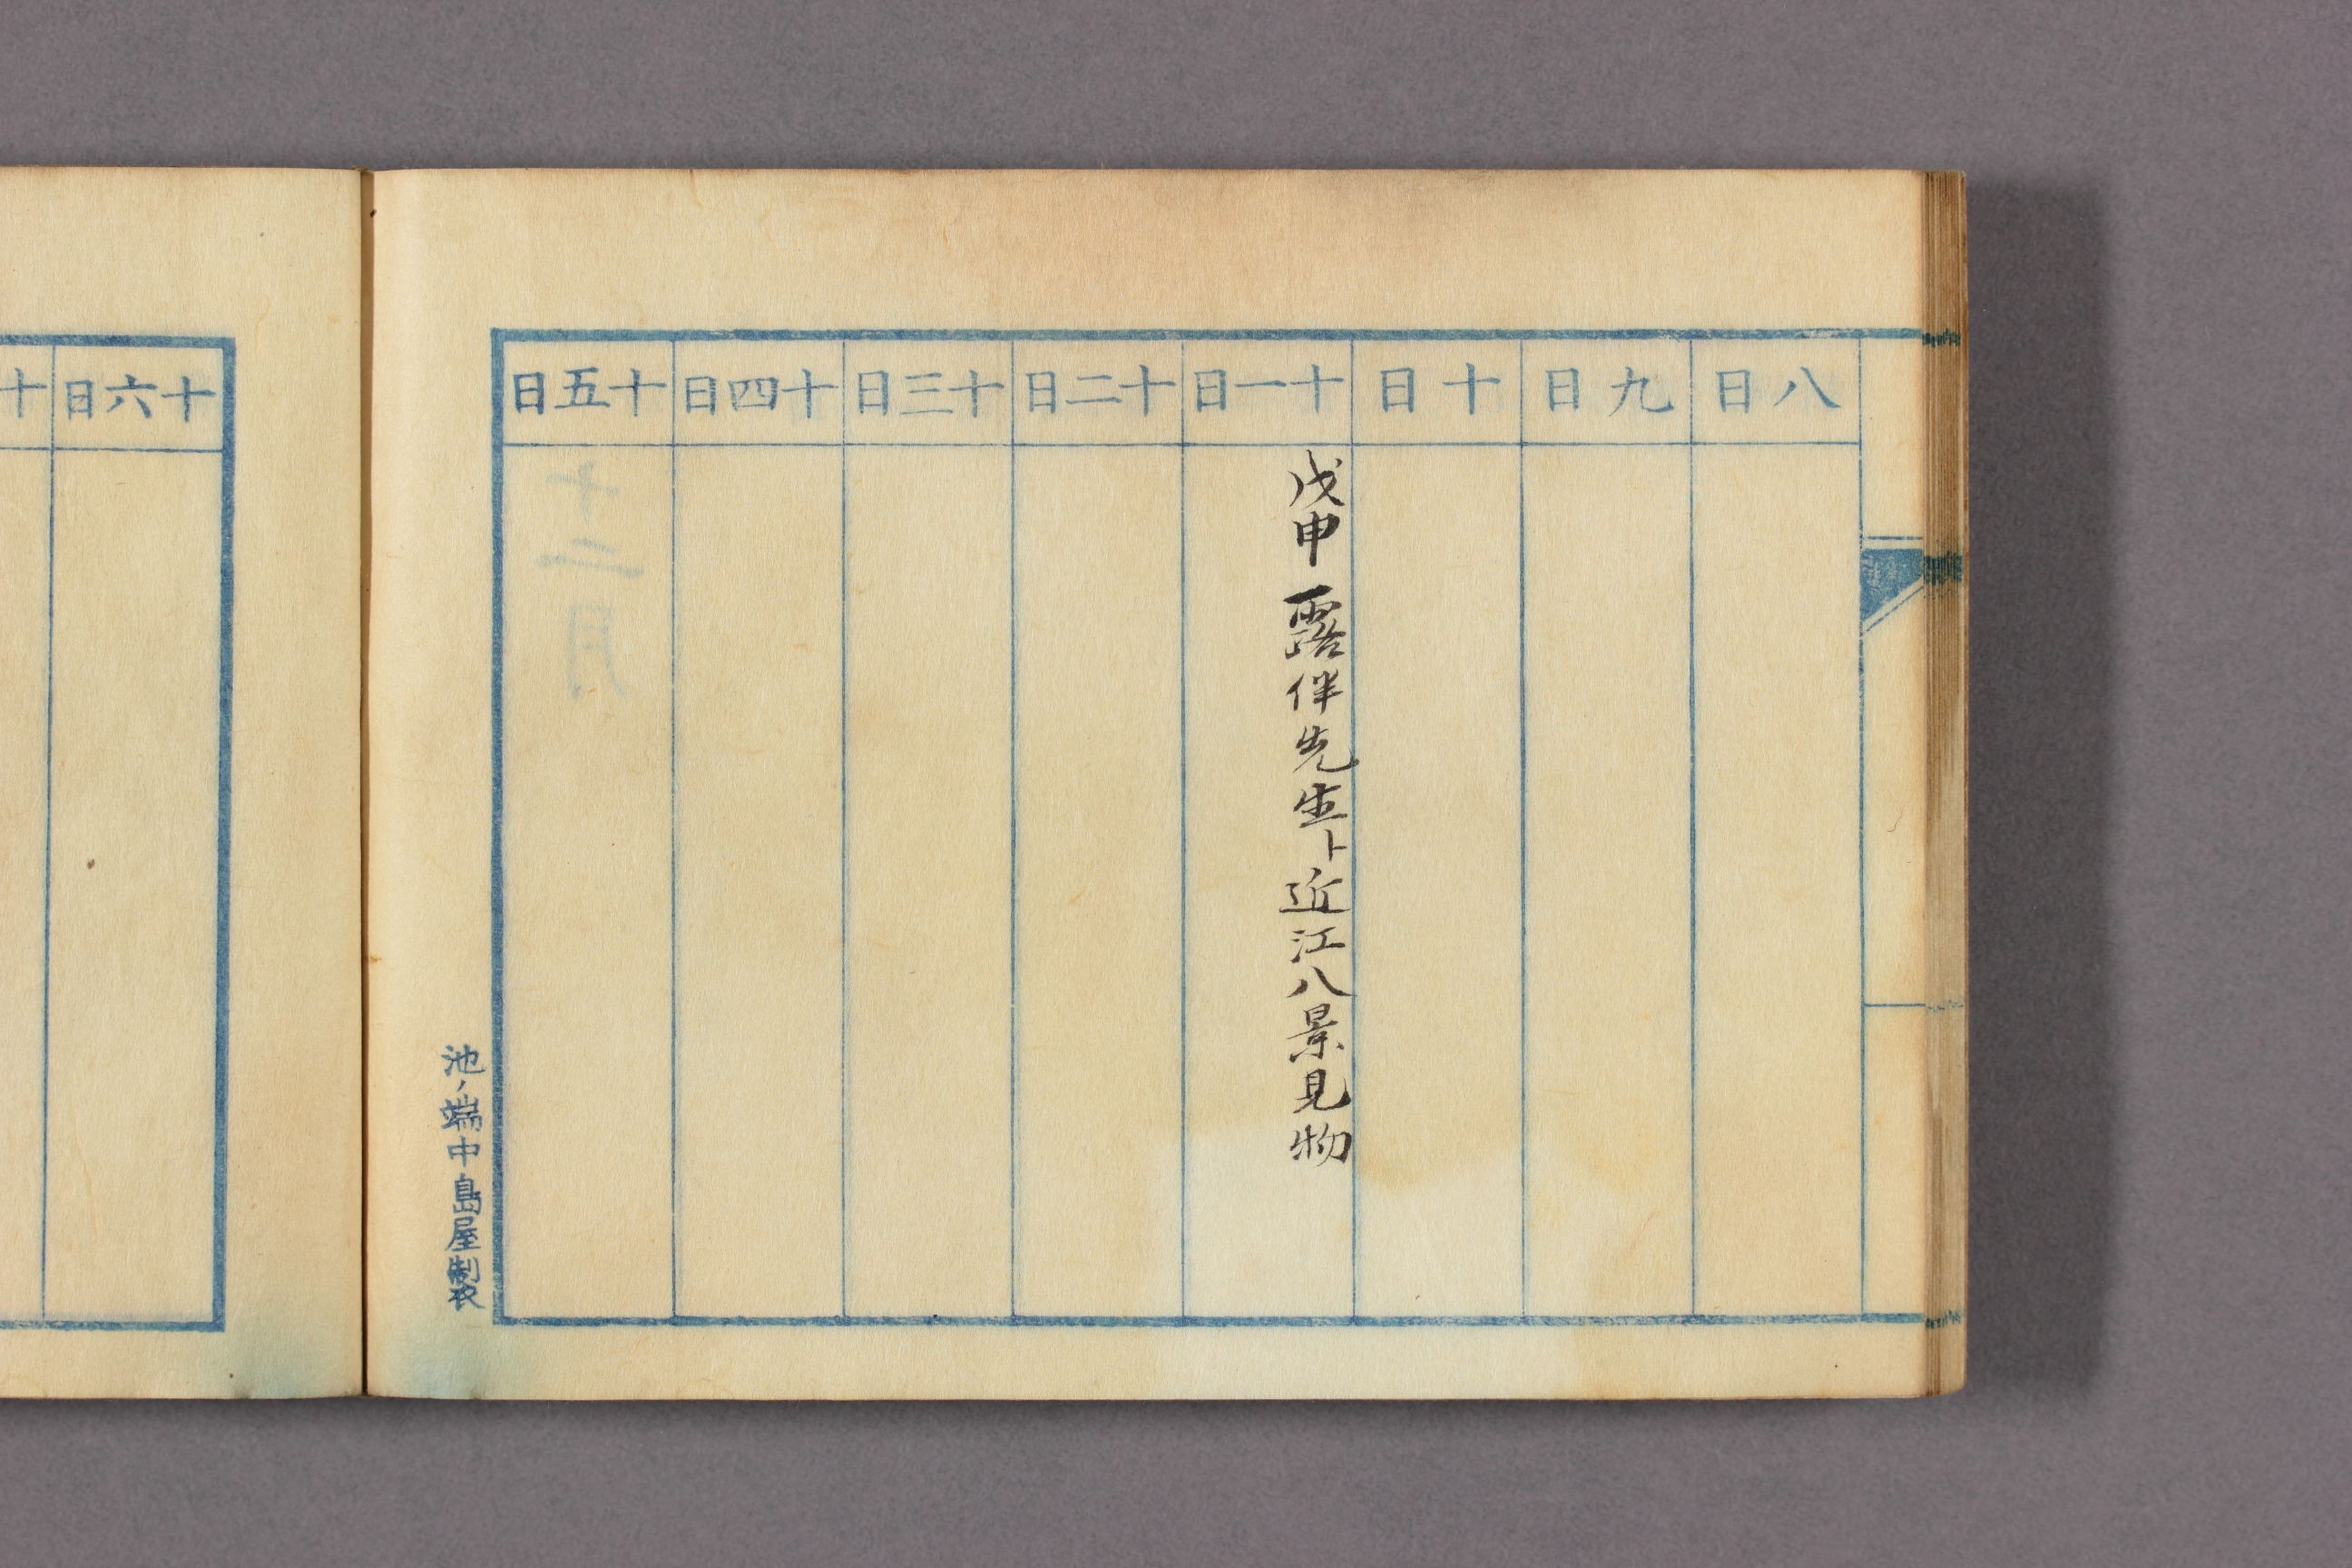 八日
九日
十日
十一日
戊申 露伴先生ト近江八景見物
十二日
十三日
十四日
十五日
十二月
池ノ端中島屋製
十六日
十